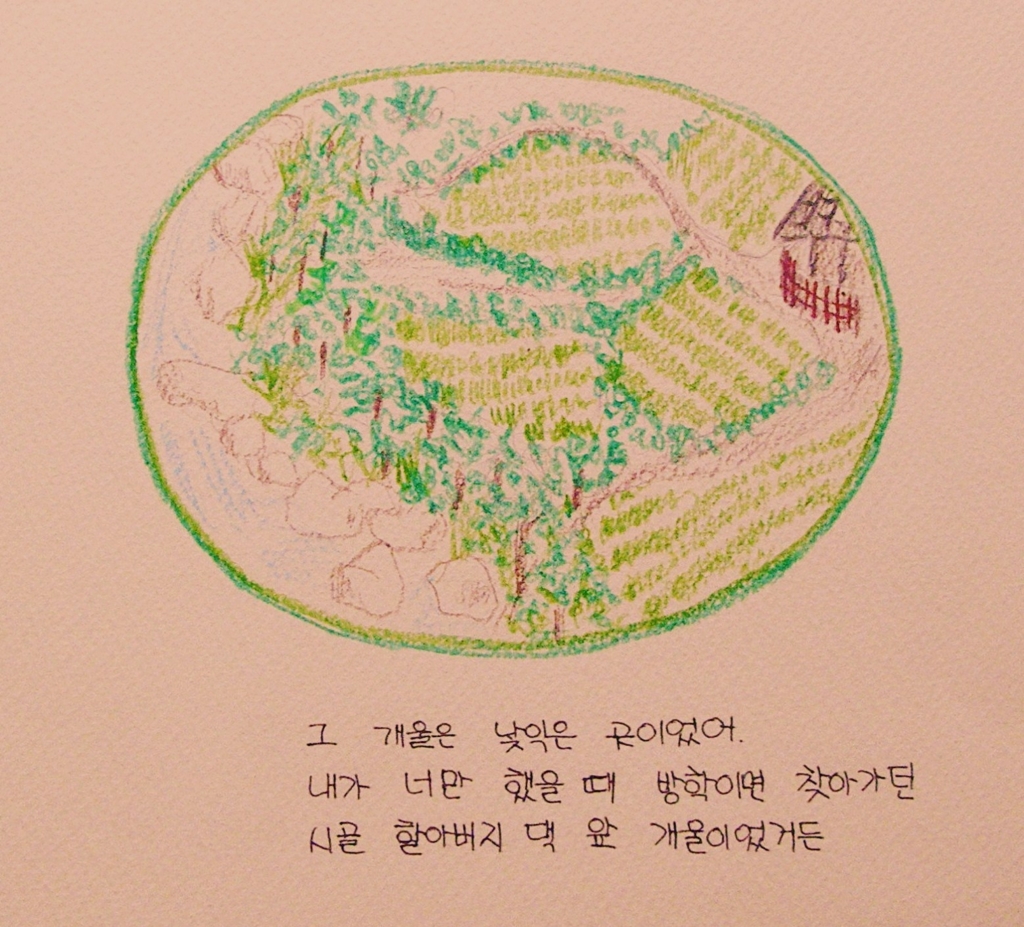 그 개울은 낯익은 곳이었어.
내가 너만 했을 때 방학이면 찾아가던
시골 할아버지 댁 앞 개울이었거든